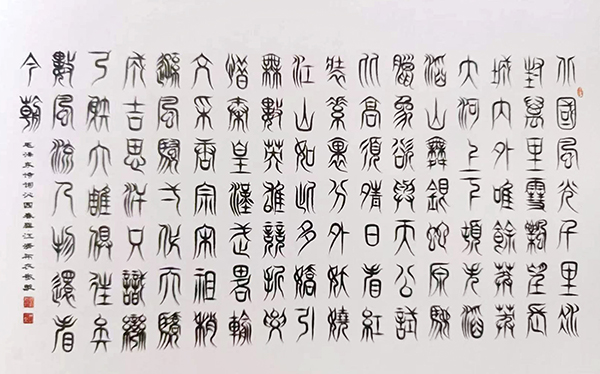 北國風光千里冰
封萬里雪飄望長
城內外唯餘莽莽
大河上下頓失滔
滔山舞銀蛇原馳
臘象欲與天公試
比高須晴日看紅
裝素裹分外妖嬈
江山如此多嬌引
無數英雄競折腰
惜秦皇漢武略輸
文采唐宗宋祖稍
遜風騷一代天驕
成吉思汗只識彎
弓射大雕俱往矣
數風流人物還看
今朝
毛澤東詩詞沁园春雪